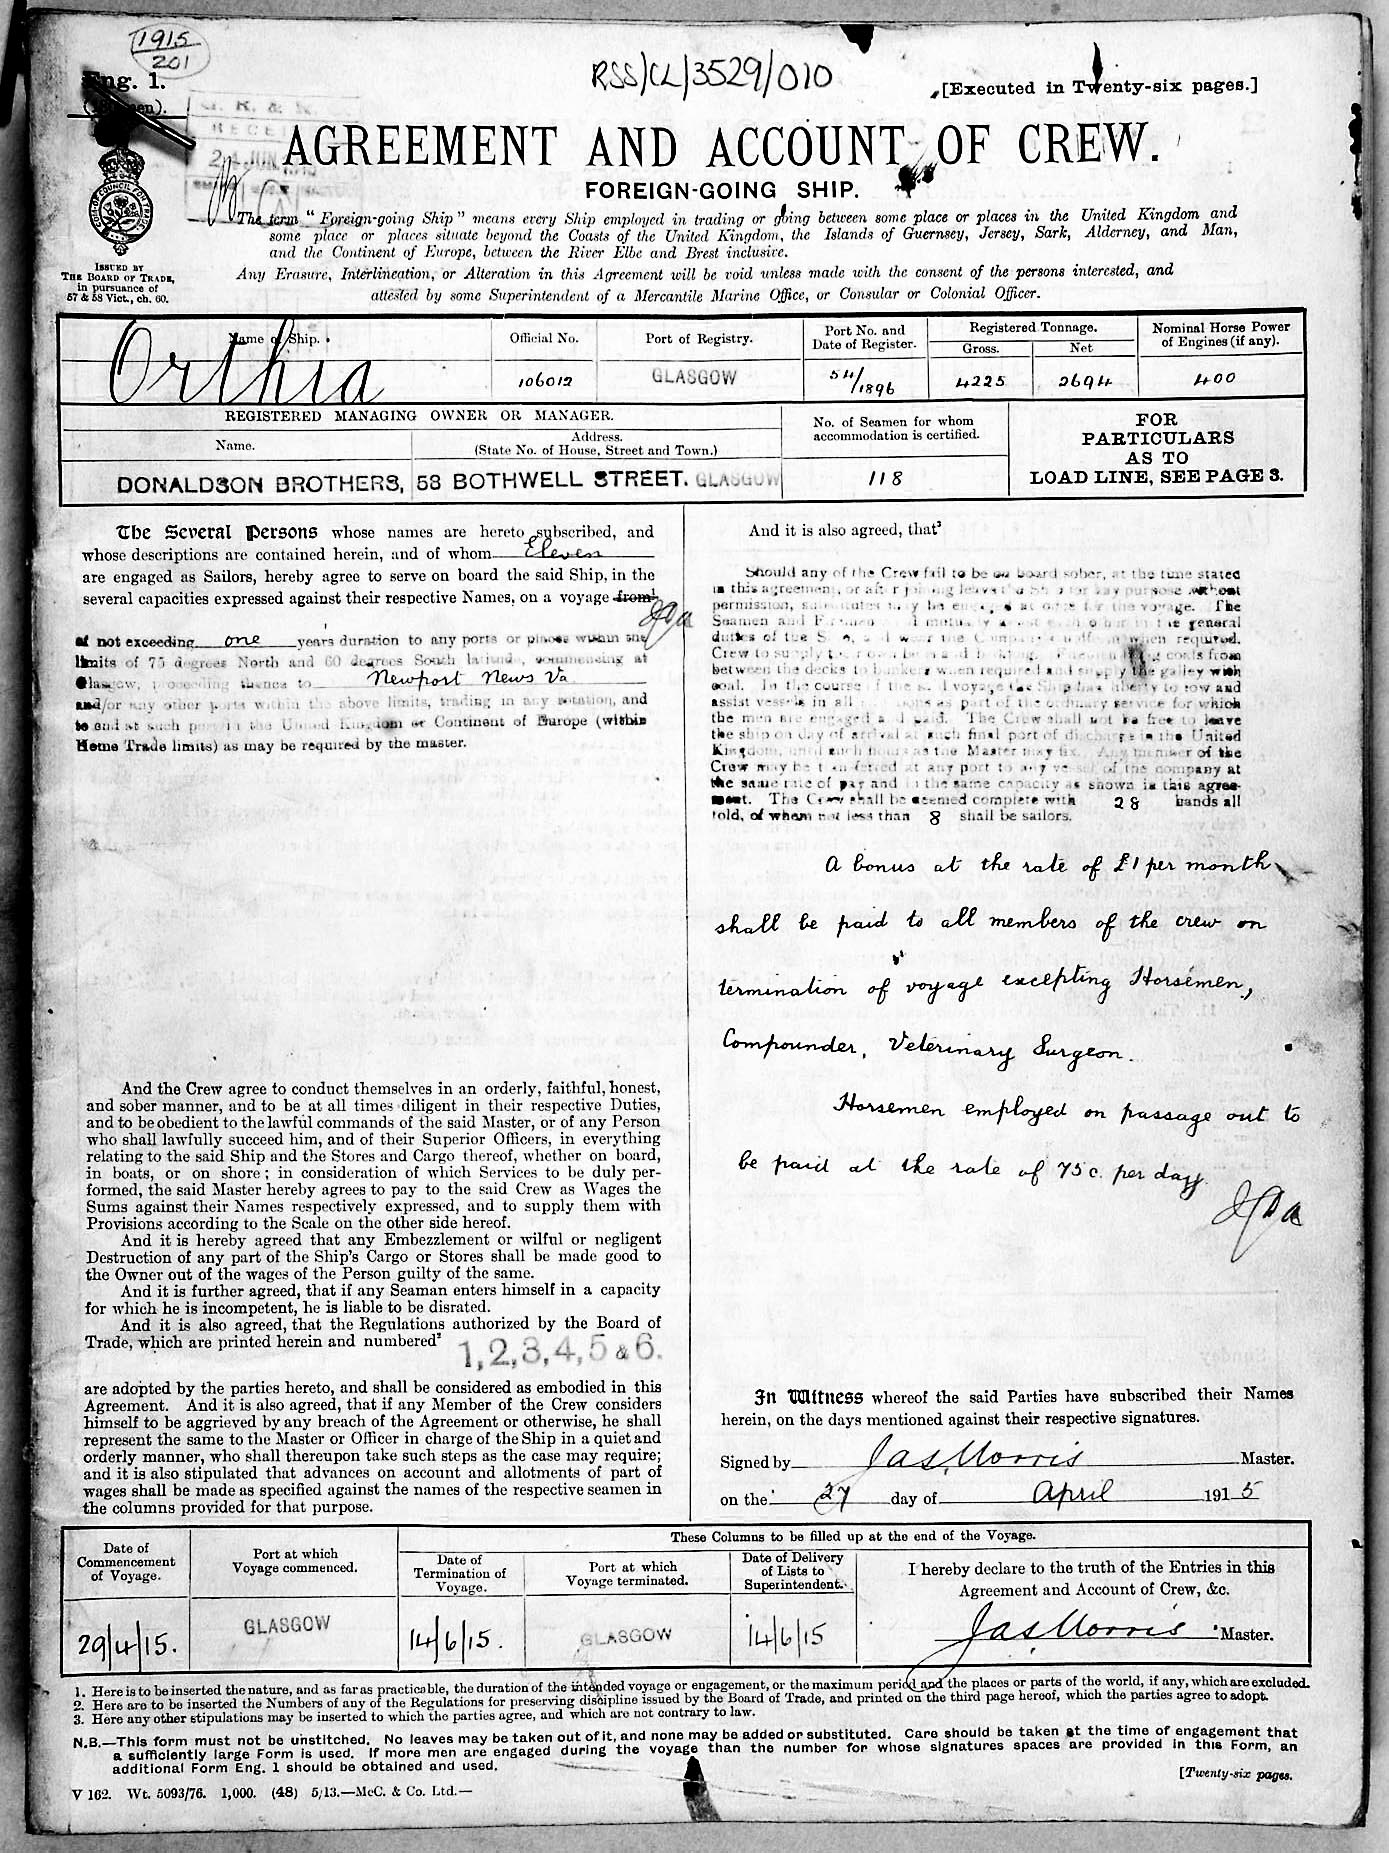 1915
201
RSS/CL/3529/010
Eng. 1.
[Executed in Twenty-six pages.]
AGREEMENT AND ACCOUNT OF CREW.
FOREIGN-GOING SHIP.
The term "Foreign-going Ship" means every Ship employed in trading or going between some place or places in the United Kingdom and
some place or places situate beyond the Coasts of the United Kingdom, the Islands of Guernsey, Jersey, Sark, Alderney, and Man,
and the Continent of Europe, between the River Elbe and Brest inclusive.
Any Erasure, Interlineation, or Alteration in this Agreement will be void unless made with the consent of the persons interested, and
attested by some Superintendent of a Mercantile Marine Office, or Consular or Colonial Officer.
ISSUED BY
THE BOARD OF TRADE,
in pursuance of
57 & 58 Vict., ch. 60.
Name of Ship.
Orthia
Official No.
106012
Port of Registry.
GLASGOW
Port No. and
Date of Register.
54/1896
Registered Tonnage.
Gross.
4225
Net
2694
Nominal Horse Power
of Engines (if any).
400
REGISTERED MANAGING OWNER OR MANAGER.
Name.
Address.
(State No. of House, Street and Town.)
DONALDSON BROTHERS, 58 BOTHWELL STREET. GLASGOW
No. of Seamen for whom
accommodation is certified.
118
FOR
PARTICULARS
AS TO
LOAD LINE, SEE PAGE 3.
The Several Persons whose names are hereto subscribed, and
whose descriptions are contained herein, and of whom Eleven
are engaged as Sailors, hereby agree to serve on board the said Ship, in the
several capacities expressed against their respective Names, on a voyage from¹
of not exceeding one years duration to any ports or places within the
limits of 75 degrees North and 60 degrees South latitude, commencing at
Glasgow, proceeding thence to Newport News Va
and/or any other ports within the above limits, trading in any rotation, and
to end at such port in the United Kingdom or Continent of Europe (within
Home Trade limits) as may be required by the master.
And the Crew agree to conduct themselves in an orderly, faithful, honest,
and sober manner, and to be at all times diligent in their respective Duties,
and to be obedient to the lawful commands of the said Master, or of any Person
who shall lawfully succeed him, and of their Superior Officers, in everything
relating to the said Ship and the Stores and Cargo thereof, whether on board,
in boats, or on shore; in consideration of which Services to be duly per-
formed, the said Master hereby agrees to pay to the said Crew as Wages the
Sums against their Names respectively expressed, and to supply them with
Provisions according to the Scale on the other side hereof.
And it is hereby agreed that any Embezzlement or wilful or negligent
Destruction of any part of the Ship's Cargo or Stores shall be made good to
the Owner out of the wages of the Person guilty of the same.
And it is further agreed, that if any Seaman enters himself in a capacity
for which he is incompetent, he is liable to be disrated.
And it is also agreed, that the Regulations authorized by the Board of
Trade, which are printed herein and numbered² 1, 2, 3, 4, 5 & 6.
are adopted by the parties hereto, and shall be considered as embodied in this
Agreement. And it is also agreed, that if any Member of the Crew considers
himself to be aggrieved by any breach of the Agreement or otherwise, he shall
represent the same to the Master or Officer in charge of the Ship in a quiet and
orderly manner, who shall thereupon take such steps as the case may require;
and it is also stipulated that advances on account and allotments of part of
wages shall be made as specified against the names of the respective seamen in
the columns provided for that purpose.
And it is also agreed, that³
Should any of the Crew fail to be on board sober, at the time stated
in this agreement, or after joining leave the Ship for any purpose without
permission, substitutes may be engaged at once for the voyage. The
Seamen and Firemen in the general
duties of the Ship, and wear the Company's uniform when required.
Crew to supply coals from
between the decks to bunkers when required and supply the galley with
coal. In the course of the said voyage the Ship has liberty to tow and
assist vessels in all as part of the ordinary service for which
the men are engaged and paid. The Crew shall not be free to leave
the ship on day of arrival at such final port of discharge in the United
Kingdom, until such hour as the Master may fix. Any member of the
Crew may be transferred at any port to any vessel of the company at
the same rate of pay and in the same capacity as shown in this agree-
ment. The Crew shall be deemed complete with 28 hands all
told, of whom not less than 8 shall be sailors.
A bonus at the rate of £1 per month
shall be paid to all members of the crew on
termination of voyage excepting Horsemen,
Compounder, Veterinary Surgeon.
Horsemen employed on passage out to
be paid at the rate of 75c. per day.
In Witness whereof the said Parties have subscribed their Names
herein, on the days mentioned against their respective signatures.
Signed by Jas. Morris Master.
on the 27 day of April 1915
Date of
Commencement
of Voyage.
29/4/15.
Port at which
Voyage commenced.
GLASGOW
These Columns to be filled up at the end of the Voyage.
Date of
Termination of
Voyage.
14/6/15.
Port at which
Voyage terminated.
GLASGOW
Date of Delivery
of Lists to
Superintendent.
14/6/15
I hereby declare to the truth of the Entries in this
Agreement and Account of Crew, &c.
Jas Morris Master.
1. Here is to be inserted the nature, and as far as practicable, the duration of the intended voyage or engagement, or the maximum period and the places or parts of the world, if any, which are excluded.
2. Here are to be inserted the Numbers of any of the Regulations for preserving discipline issued by the Board of Trade, and printed on the third page hereof, which the parties agree to adopt.
3. Here any other stipulations may be inserted to which the parties agree, and which are not contrary to law.
N.B.—This form must not be unstitched. No leaves may be taken out of it, and none may be added or substituted. Care should be taken at the time of engagement that
a sufficiently large Form is used. If more men are engaged during the voyage than the number for whose signatures spaces are provided in this Form, an
additional Form Eng. 1 should be obtained and used.
[Twenty-six pages.
V 162. Wt. 5093/76. 1,000. (48) 5/13.—McC. & Co. Ltd.—